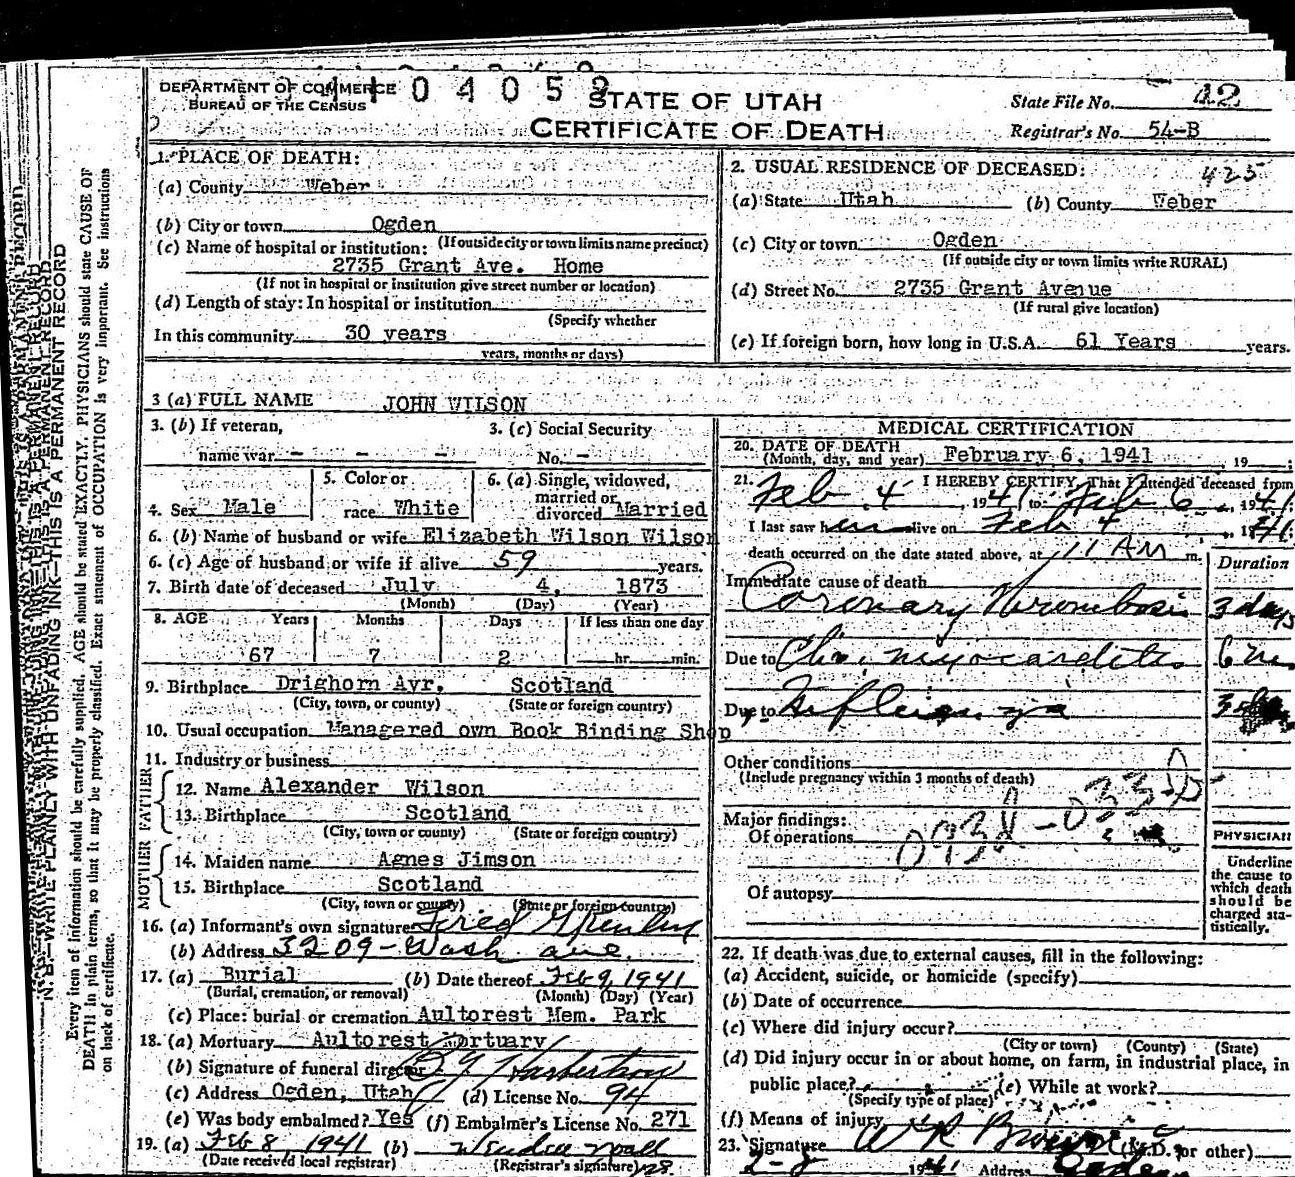 DEPARTMENT OF COMMERCE
BUREAU OF THE CENSUS
0 4 0 5
STATE OF UTAH
CERTIFICATE OF DEATH
State File No. 42
Registrar's No. 54-B
1. PLACE OF DEATH:
(a) County Weber
(b) City or town Ogden
(c) Name of hospital or institution: (If outside city or town limits name precinct)
2735 Grant Ave. Home
(If not in hospital or institution give street number or location)
(d) Length of stay: In hospital or institution
(Specify whether
In this community 30 years
years, months or days)
2. USUAL RESIDENCE OF DECEASED: 425
(a) State Utah (b) County Weber
(c) City or town Ogden
(If outside city or town limits write RURAL)
(d) Street No. 2735 Grant Avenue
(If rural give location)
(e) If foreign born, how long in U.S.A. 61 Years years.
3 (a) FULL NAME JOHN WILSON
3. (b) If veteran, name war - - -
3. (c) Social Security No. -
4. Sex Male
5. Color or race White
6. (a) Single, widowed, married or divorced Married
6. (b) Name of husband or wife Elizabeth Wilson Wilson
6. (c) Age of husband or wife if alive 59 years.
7. Birth date of deceased July 4, 1873
(Month) (Day) (Year)
8. AGE Years Months Days If less than one day
67 7 2 hr. min.
9. Birthplace Drighorn Ayr, Scotland
(City, town, or county) (State or foreign country)
10. Usual occupation Managered own Book Binding Shop
11. Industry or business
FATHER
12. Name Alexander Wilson
13. Birthplace Scotland
(City, town or county) (State or foreign country)
MOTHER
14. Maiden name Agnes Jimson
15. Birthplace Scotland
(City, town or county) (State or foreign country)
16. (a) Informant's own signature Fred
(b) Address 3209-Wash ave.
17. (a) Burial (b) Date thereof Feb 9, 1941
(Burial, cremation, or removal) (Month) (Day) (Year)
(c) Place: burial or cremation Aultorest Mem. Park
18. (a) Mortuary Aultorest Mortuary
(b) Signature of funeral director
(c) Address Ogden, Utah (d) License No. 94
(e) Was body embalmed? Yes (f) Embalmer's License No. 271
19. (a) Feb 8, 1941 (b)
(Date received local registrar) (Registrar's signature)
MEDICAL CERTIFICATION
20. DATE OF DEATH
(Month, day, and year) February 6, 1941 , 19 ;
21. I HEREBY CERTIFY, That I attended deceased from
Feb 4 , 1941 to Feb 6 , 1941;
I last saw him alive on Feb 4 , 1941;
death occurred on the date stated above, at 11 AM m.
Duration
Immediate cause of death
Coronary Thrombosis 3 days
Due to Chr. myocarditis
Due to Influenza
Other conditions
(Include pregnancy within 3 months of death)
Major findings:
Of operations
Of autopsy
PHYSICIAN
Underline
the cause to
which death
should be
charged sta-
tistically.
22. If death was due to external causes, fill in the following:
(a) Accident, suicide, or homicide (specify)
(b) Date of occurrence
(c) Where did injury occur?
(City or town) (County) (State)
(d) Did injury occur in or about home, on farm, in industrial place, in
public place? (e) While at work?
(Specify type of place)
(f) Means of injury
23. Signature W R Brown (M.D. or other)
2-8 1941 Address Ogden
N. B.—WRITE PLAINLY WITH UNFADING INK—THIS IS A PERMANENT RECORD
Every item of information should be carefully supplied. AGE should be stated EXACTLY. PHYSICIANS should state CAUSE OF
DEATH in plain terms, so that it may be properly classified. Exact statement of OCCUPATION is very important. See instructions
on back of certificate.